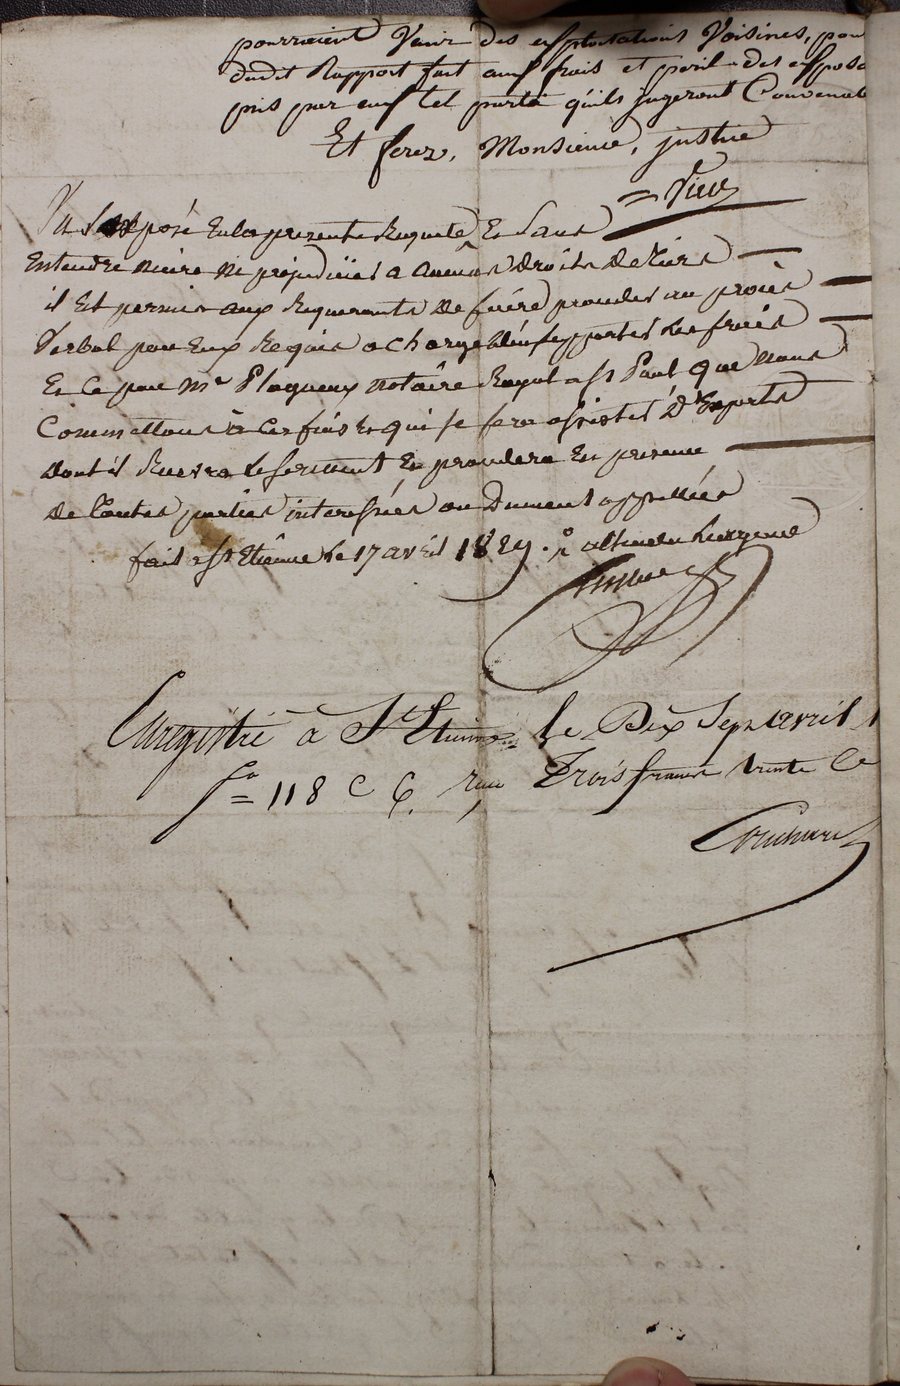 pourraient Venir des exploitations Voisines, pour
dudit Rapport fait aux frais et peril des exposa
pris par eux tel parti qu'ils jugeront Convenab
Et ferez, Monsieur, justice
Vu l'exposé En la presente Requete Et Sans
Entendre nuire ni prejudicier a aucuns droits de tiers
il Est permis aux Requerants de faire proceder au procès
Verbal par Eux Requis a charge d'en supporter les frais
Et ce par Mr Plagneux notaire Royal a St Paul que nous
Commettons à ces fins Et qui se fera assister d'Experts
dont il Recevra le serment Et procedera En presence
de toutes parties interessées ou Dument appellées
fait a St Etienne le 17 avril 1829.
Enregistré à St Etienne le Dix Sept avril 1
fo 118 C 6. reçu Trois francs trente Ce